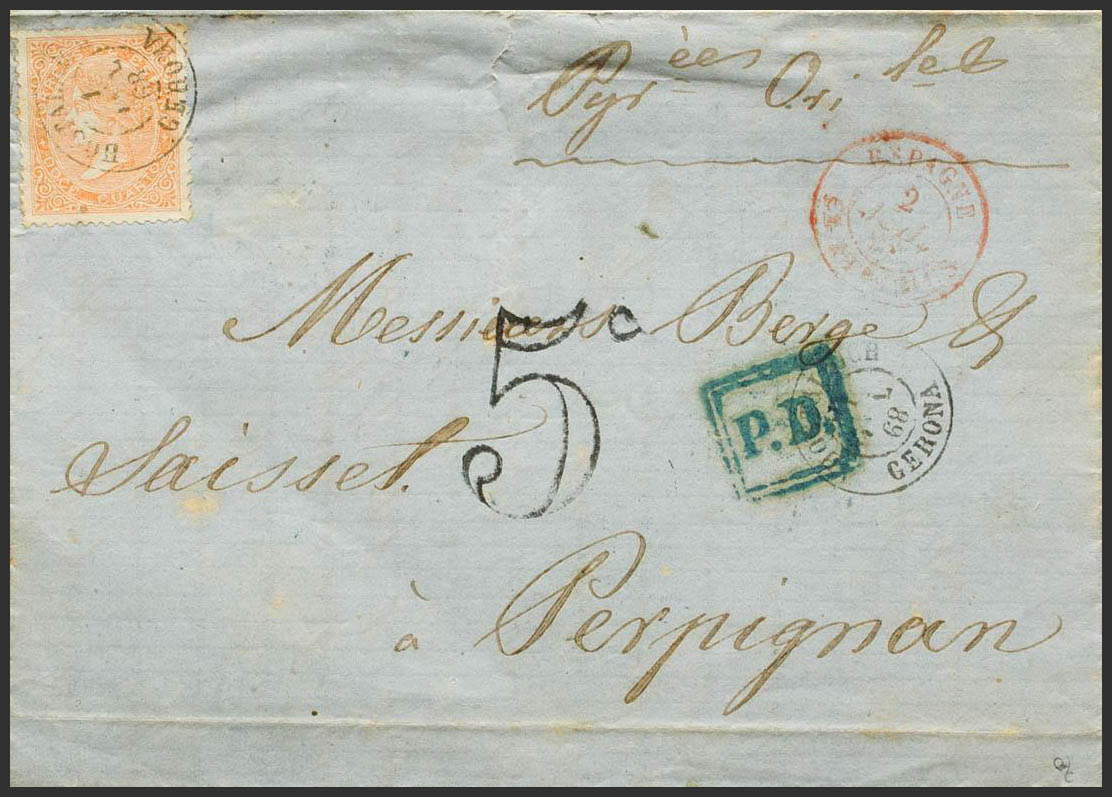 Pyr ées Ori les
ESPAGNE
2
Messieurs Berge &
5c
P.D.
68
GERONA
Saisset.
à Perpignan
GERONA
CUATOS